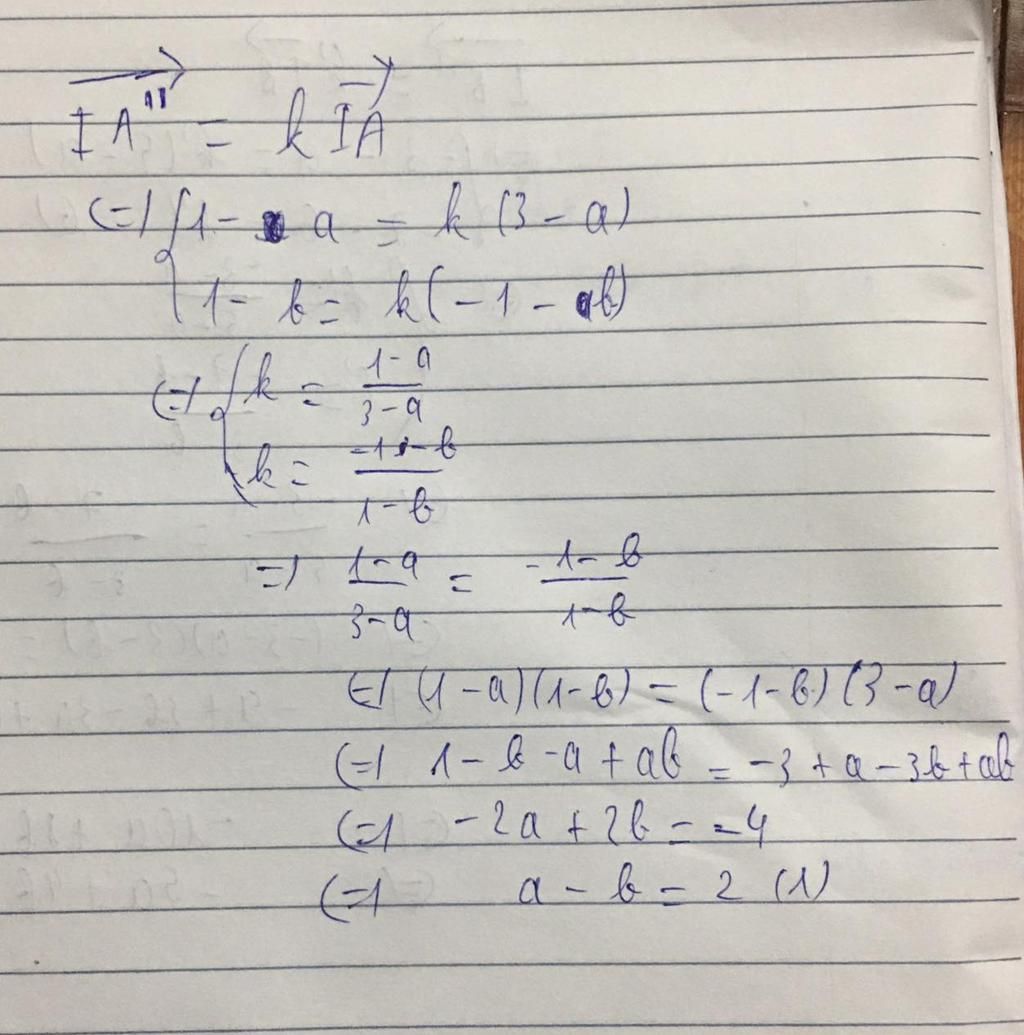 IA" = k IA
(=) { 1 - a = k (3 - a)
1 - b = k (-1 - b)
(=) { k = 1-a / 3-a
k = -1-b / 1-b
=) 1-a / 3-a = -1-b / 1-b
(=) (1-a)(1-b) = (-1-b)(3-a)
(=) 1 - b - a + ab = -3 + a - 3b + ab
(=) -2a + 2b = -4
(=) a - b = 2 (1)